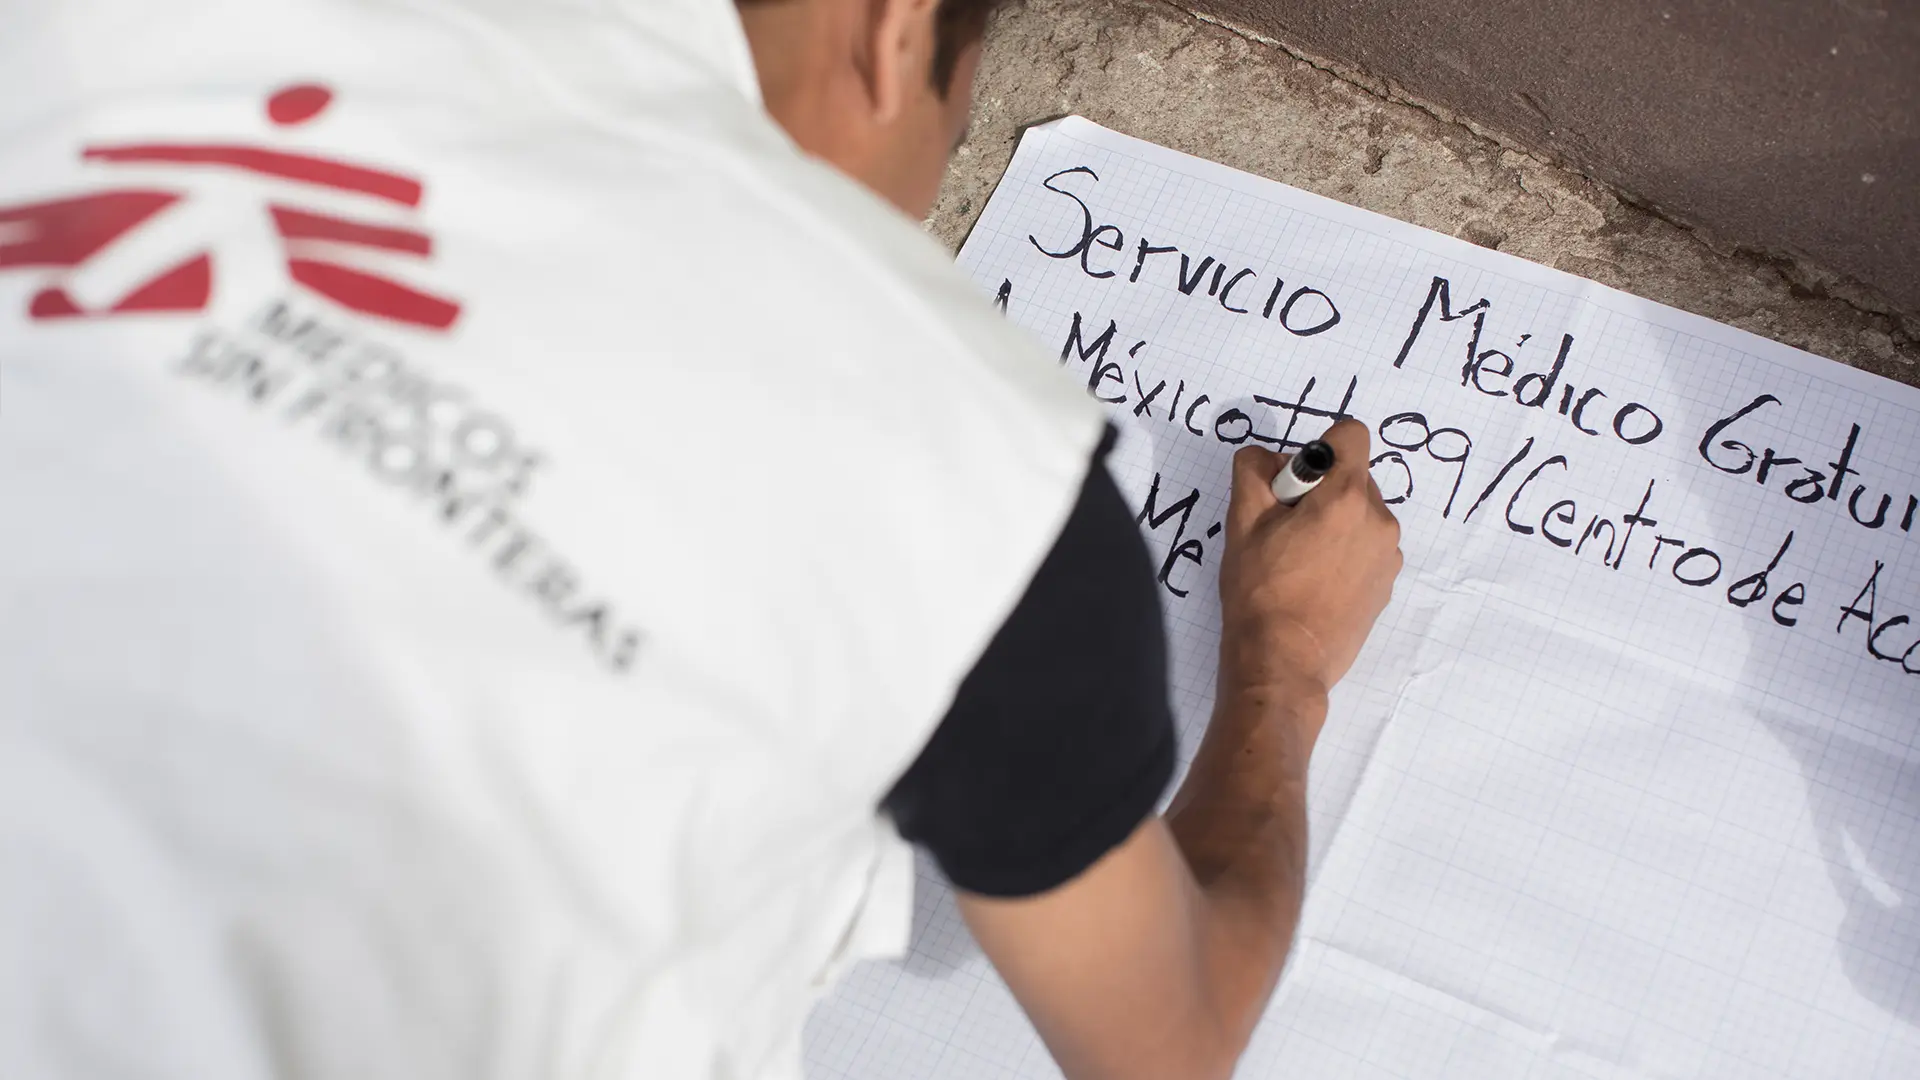 MEDICOS
SIN FRONTERAS
Servicio Médico Gratui
A. México # 89/Centro de Aco
Mé